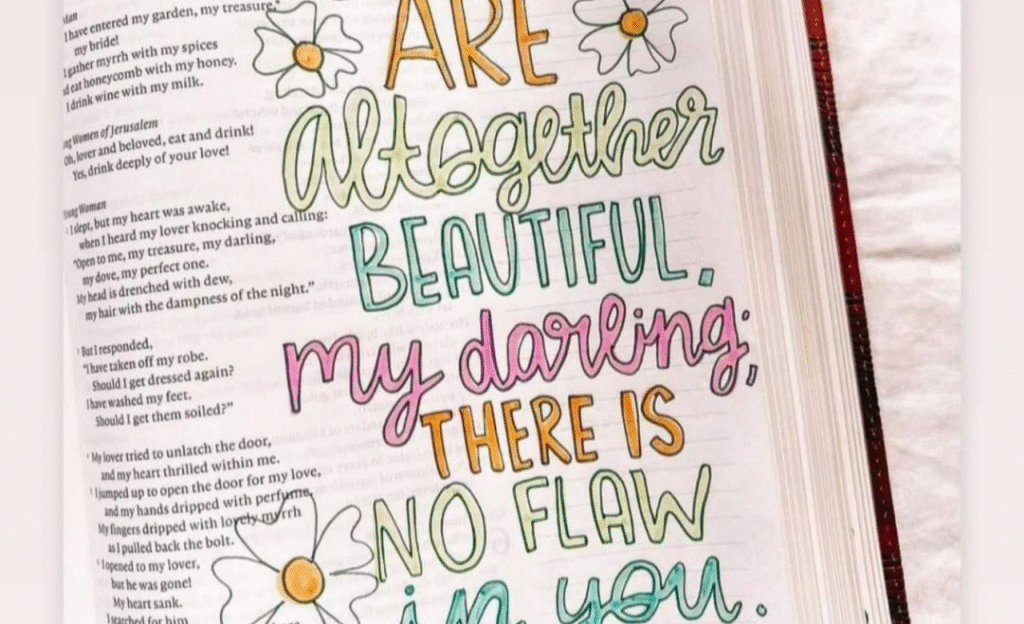 Man
I have entered my garden, my treasure,
my bride!
I gather myrrh with my spices
and eat honeycomb with my honey.
I drink wine with my milk.
Young Women of Jerusalem
Oh, lover and beloved, eat and drink!
Yes, drink deeply of your love!
Young Woman
I slept, but my heart was awake,
when I heard my lover knocking and calling:
"Open to me, my treasure, my darling,
my dove, my perfect one.
My head is drenched with dew,
my hair with the dampness of the night."
But I responded,
"I have taken off my robe.
Should I get dressed again?
I have washed my feet.
Should I get them soiled?"
My lover tried to unlatch the door,
and my heart thrilled within me.
I jumped up to open the door for my love,
and my hands dripped with perfume.
My fingers dripped with lovely myrrh
as I pulled back the bolt.
I opened to my lover,
but he was gone!
My heart sank.
I searched for him
ARE
altogether
BEAUTIFUL,
my darling;
THERE IS
NO FLAW
in you.